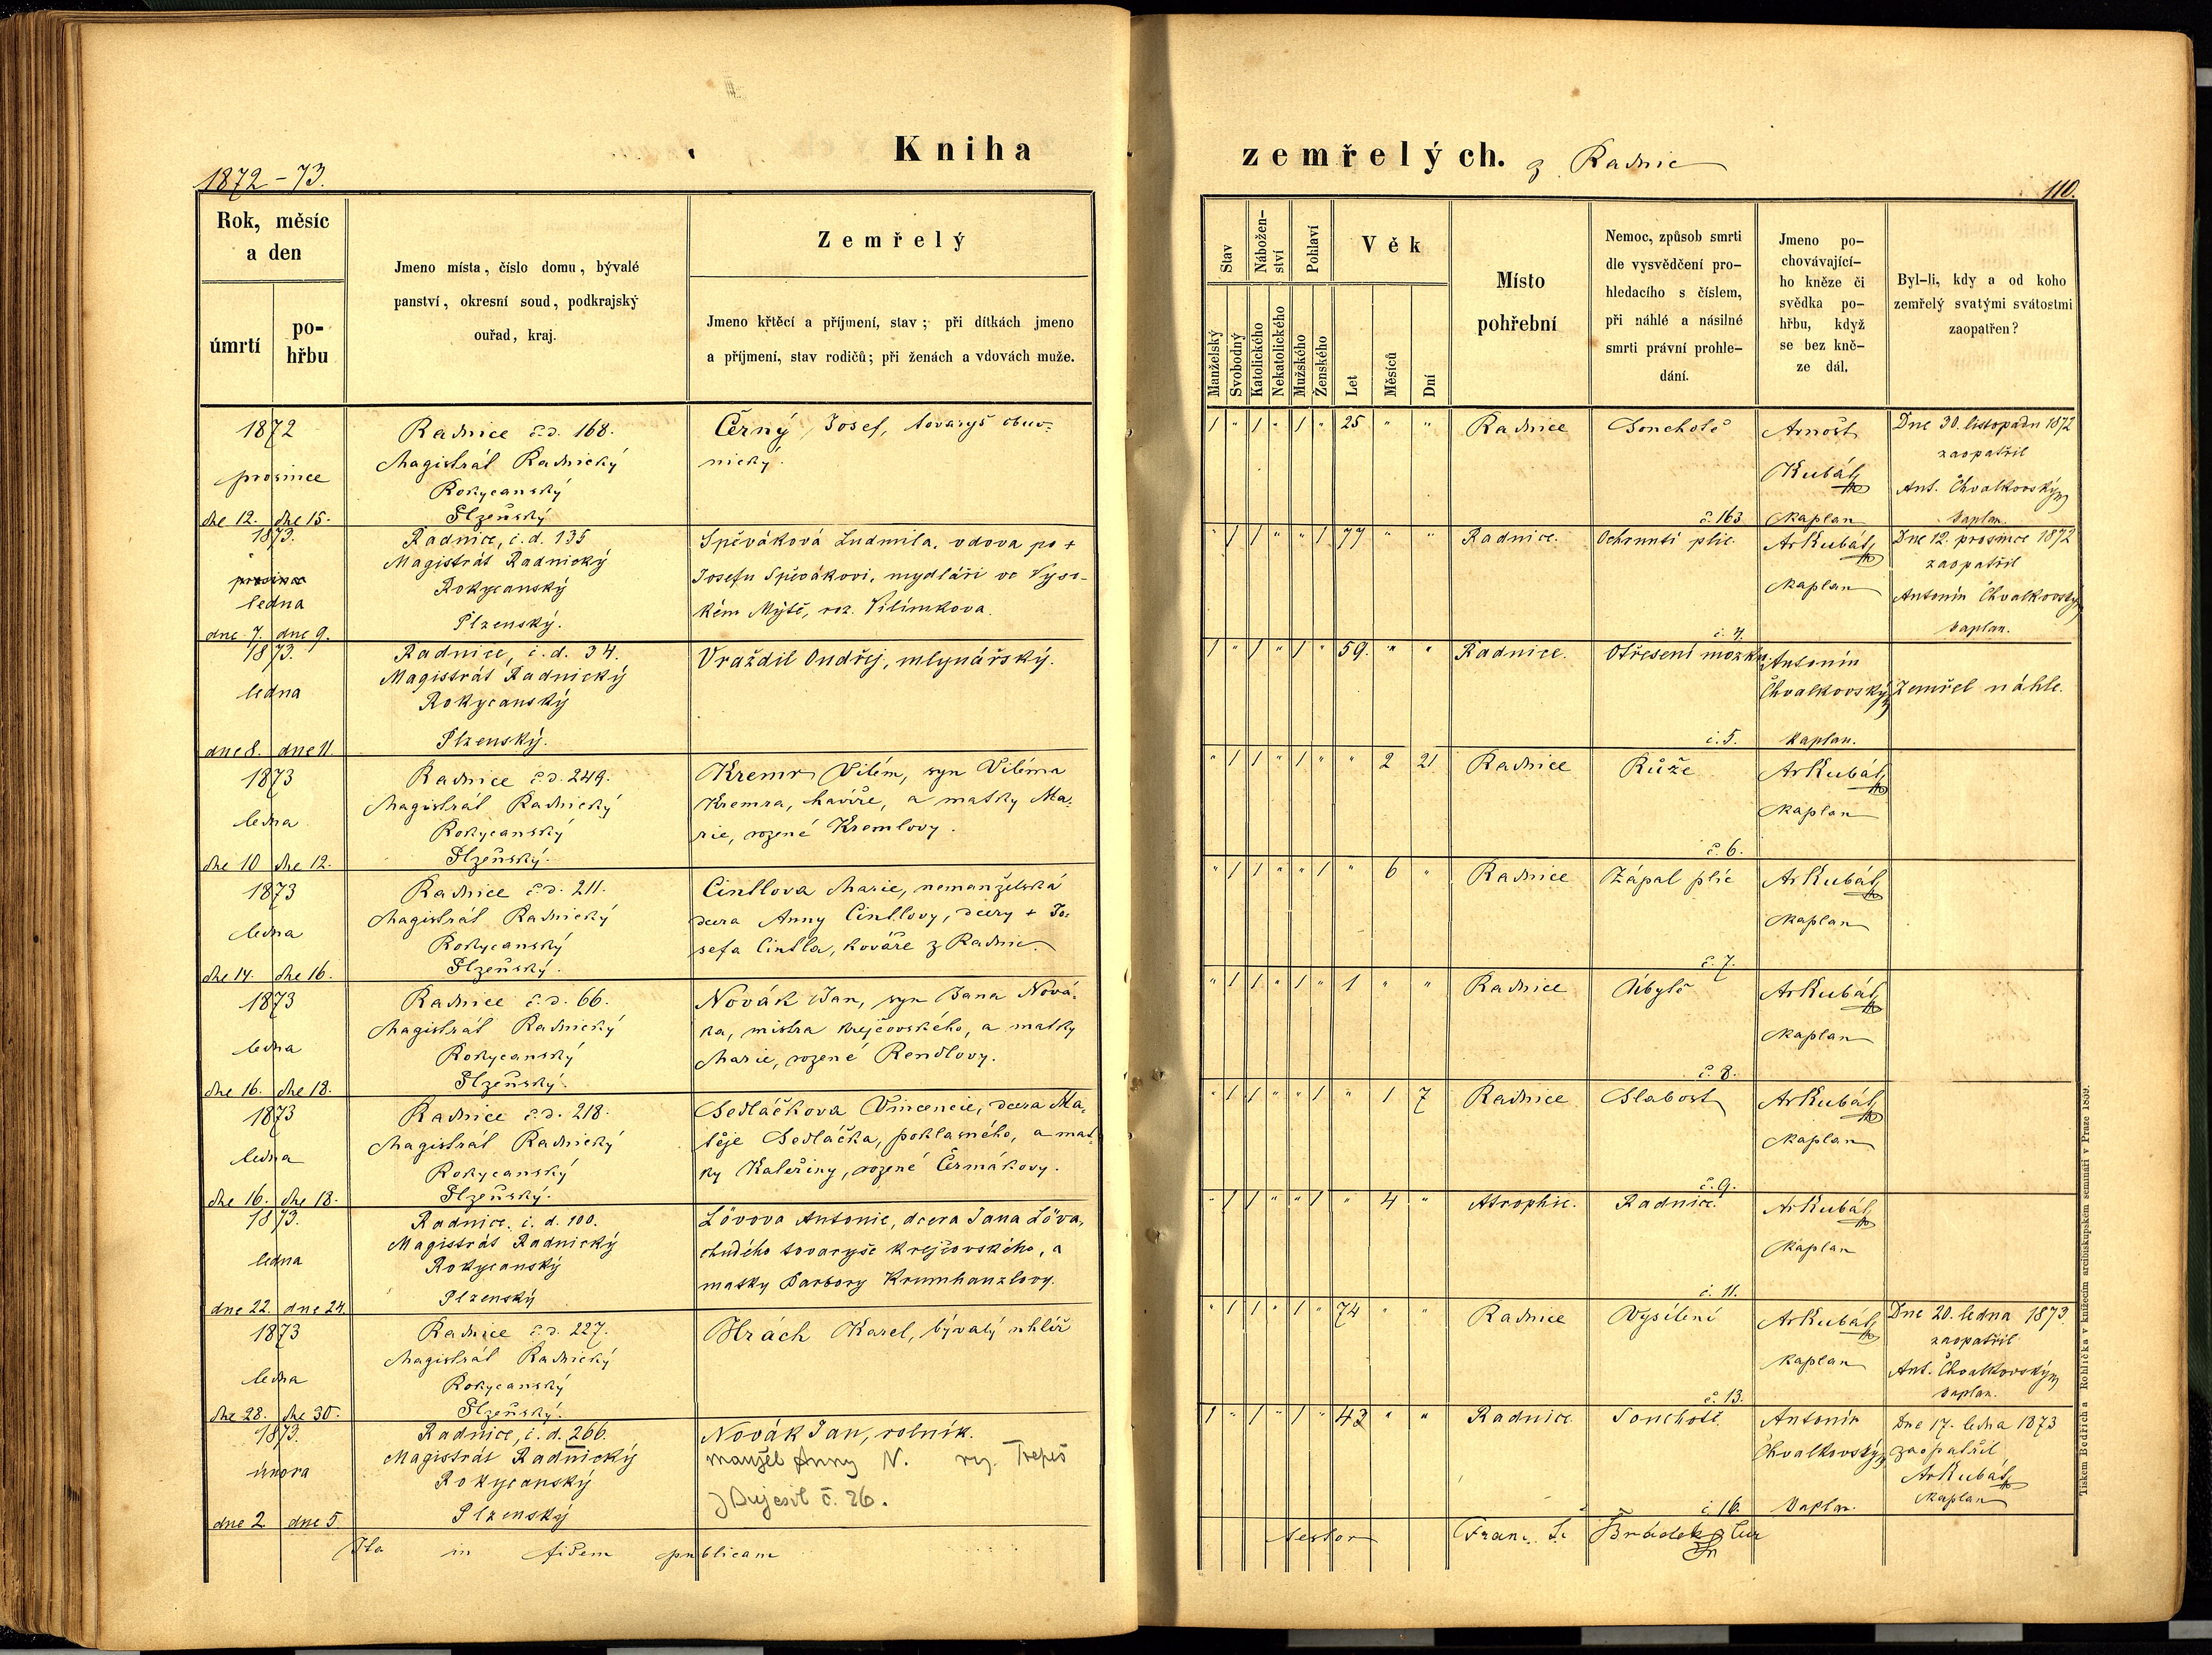 Kniha
1872 – 73.
Rok, měsíc
a den
úmrtí
po-
hřbu
Jmeno místa, číslo domu, bývalé
panství, okresní soud, podkrajský
ouřad, kraj.
Zemřelý
Jmeno křtěcí a příjmení, stav; při dítkách jmeno
a příjmení, stav rodičů; při ženách a vdovách muže.
1872
prosince
dne 12. dne 15.
Radnice č.d. 168.
Magistrát Radnický
Rokycanský
Plzeňský
Černý Josef, tovaryš obuv-
nický.
1873.
prosince
ledna
dne 7. dne 9.
Radnice, č.d. 135
Magistrát Radnický
Rokycanský
Plzenský.
Spěváková Ludmila, vdova po +
Josefu Spěvákovi, mydláři ve Vyso-
kém Mýtě, roz. Vilímkova.
1873.
ledna
dne 8. dne 11.
Radnice, č.d. 34.
Magistrát Radnický
Rokycanský
Plzenský.
Vraždil Ondřej, mlynářský.
1873
ledna
dne 10 dne 12.
Radnice č.d. 249.
Magistrát Radnický
Rokycanský
Plzeňský.
Kremr Vilém, syn Viléma
Kremra, havíře, a matky Ma-
rie, rozené Kremlovy.
1873
ledna
dne 14. dne 16.
Radnice č.d. 211.
Magistrát Radnický
Rokycanský
Plzeňský.
Cintlova Marie, nemanželská
dcera Anny Cintlovy, dcery + Jo-
sefa Cintla, kováře z Radnic.
1873
ledna
dne 16. dne 18.
Radnice č.d. 66.
Magistrát Radnický
Rokycanský
Plzeňský.
Novák Jan, syn Jana Nová-
ka, mistra krejčovského, a matky
Marie, rozené Rendlovy.
1873
ledna
dne 16. dne 18.
Radnice č.d. 218.
Magistrát Radnický
Rokycanský
Plzeňský.
Sedláčkova Vincencie, dcera Ma-
těje Sedláčka, poklasného, a mat-
ky Kateřiny, rozené Čermákovy.
1873.
ledna
dne 22. dne 24.
Radnice. č. d. 100.
Magistrát Radnický
Rokycanský
Plzenský
Lövova Antonie, dcera Jana Löva,
chudého tovaryše krejčovského, a
matky Barbory Krumhanzlovy.
1873
ledna
dne 28. dne 30.
Radnice č.d. 227.
Magistrát Radnický
Rokycanský
Plzeňský.
Hrách Karel, bývalý uhlíř
1873.
února
dne 2 dne 5.
Radnice, č.d. 266.
Magistrát Radnický
Rokycanský
Plzenský
Novák Jan, rolník.
manžel Anny N. roz. Trepeš
z Bujesil č. 26.
Ita in fidem publicam
zemřelých. z Radnic
110.
Stav
Nábožen-
ství
Pohlaví
Věk
Manželský
Svobodný
Katolického
Nekatolického
Mužského
Ženského
Let
Měsíců
Dní
Místo
pohřební
Nemoc, způsob smrti
dle vysvědčení pro-
hledacího s číslem,
při náhlé a násilné
smrti právní prohle-
dání.
Jmeno po-
chovávající-
ho kněze či
svědka po-
hřbu, když
se bez kně-
ze dál.
Byl-li, kdy a od koho
zemřelý svatými svátostmi
zaopatřen?
1 " 1 " 1 " 25 " "
Radnice
Souchotě
č. 163.
Arnošt
Kubát
kaplan
Dne 30. listopadu 1872
zaopatřil
Ant. Chvalkovský
kaplan.
" 1 1 " " 1 77 " "
Radnice.
Ochrnutí plic.
č. 4.
ArKubát
kaplan
Dne 12. prosince 1872
zaopatřil
Antonín Chvalkovský
kaplan.
1 " 1 " 1 " 59. " "
Radnice.
Otřesení mozku
č. 5.
Antonín
Chvalkovský
kaplan.
Zemřel náhle.
" 1 1 " 1 " " 2 21
Radnice
Růže
č. 6.
ArKubát
kaplan
" 1 1 " " 1 " 6 "
Radnice
Zápal plic
č. 7.
ArKubát
kaplan
" 1 1 " 1 " 1 " "
Radnice
Úbytě
č. 8.
ArKubát
kaplan
" 1 1 " " 1 " 1 7
Radnice
Slabost
č. 9.
ArKubát
kaplan
" 1 1 " " 1 " 4 "
Atrophie.
Radnice.
č. 11.
ArKubát
kaplan
" 1 1 " 1 " 74 " "
Radnice
Vysílení
č. 13.
ArKubát
kaplan
Dne 20. ledna 1873.
zaopatřil
Ant. Chvalkovský
kaplan.
1 " 1 " 1 " 42 " "
Radnice.
Souchotě.
č. 16.
Antonín
Chvalkovský
kaplan.
Dne 17. ledna 1873
zaopatřil
ArKubát
kaplan
testor Franc.
Tiskem Bedřicha Rohlíčka v knížecím arcibiskupském semináři v Praze 1859.